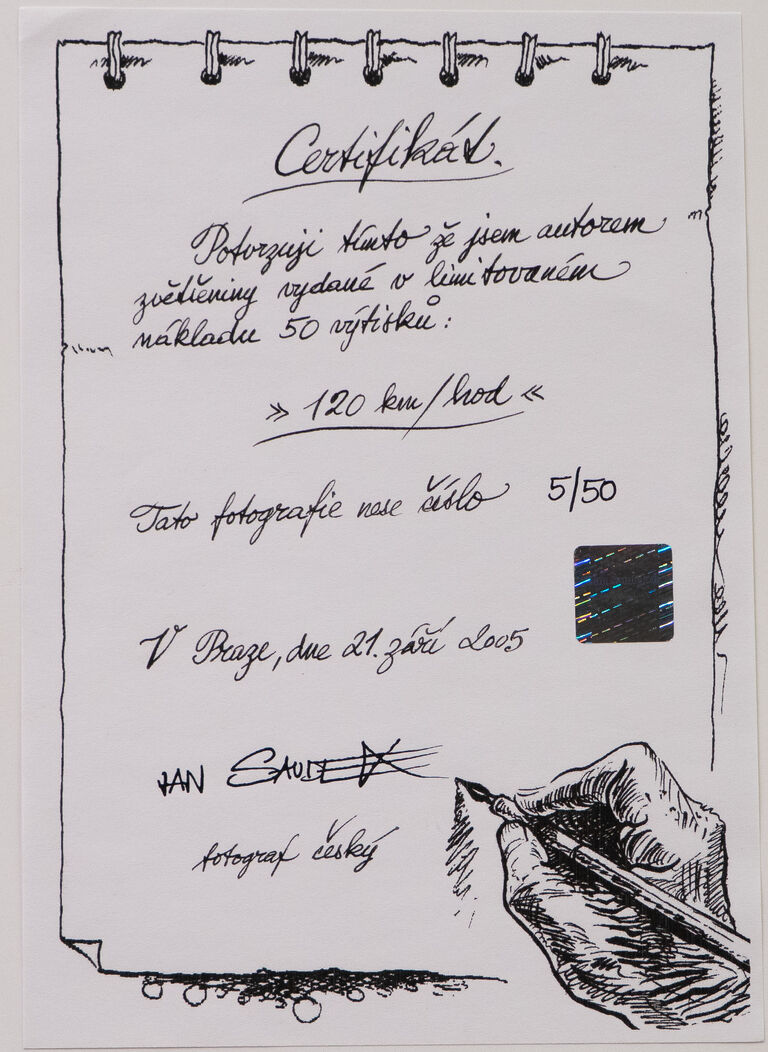 Certifikát.
Potvrzuji tímto že jsem autorem
zvětšeniny vydané v limitovaném
nákladu 50 výtisků:
» 120 km/hod «
Tato fotografie nese číslo 5/50
V Praze, dne 21. září 2005
JAN SAUDEK
fotograf český